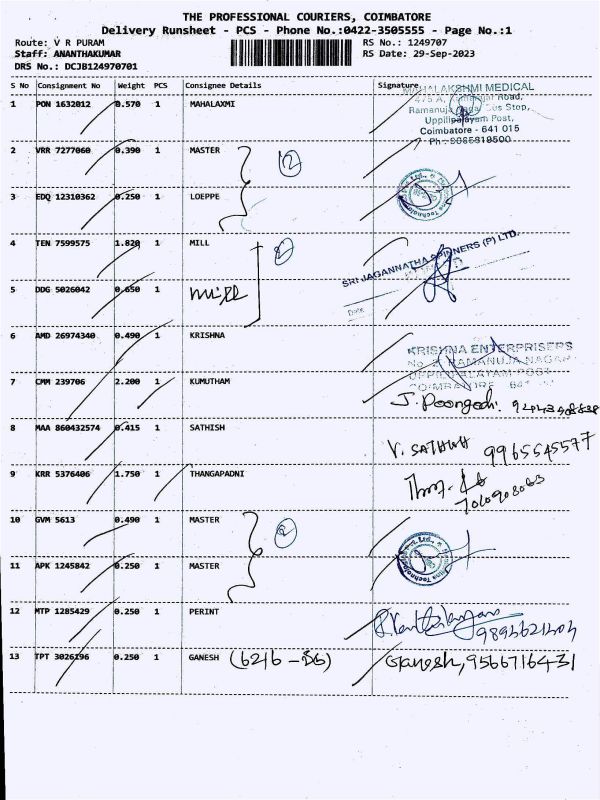 THE PROFESSIONAL COURIERS, COIMBATORE
Delivery Runsheet - PCS - Phone No.:0422-3505555 - Page No.:1
Route: V R PURAM
RS No.: 1249707
Staff: ANANTHAKUMAR
RS Date: 29-Sep-2023
DRS No.: DCJB124970701
S No Consignment No Weight PCS Consignee Details Signature
1 PON 1632012 0.570 1 MAHALAXMI
MAHALAKSHMI MEDICAL
Road,
Bus Stop,
Post,
Coimbatore - 641 015
2 VRR 7277060 0.390 1 MASTER
2
3 EDQ 12310362 0.250 1 LOEPPE
4 TEN 7599575 1.820 1 MILL
2
SRI JAGANNATHA SPINNERS (P) LTD.
Date
5 DDG 5026042 0.650 1 mill
6 AMD 26974340 0.490 1 KRISHNA
KRISHNA ENTERPRISERS
RAMANUJA NAGAR
7 CMM 239706 2.200 1 KUMUTHAM
J. Poongodi.
8 MAA 860432574 0.415 1 SATHISH
V. SATHISH 9965545577
9 KRR 5376406 1.750 1 THANGAPADNI
10 GVM 5613 0.490 1 MASTER
2
11 APK 1245842 0.250 1 MASTER
12 MTP 1285429 0.250 1 PERINT
13 TPT 3026196 0.250 1 GANESH
Ganesh, 9566716431